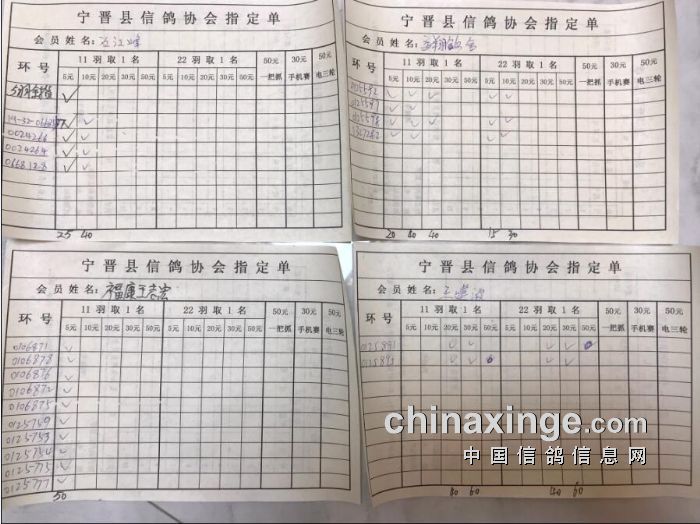 宁晋县信鸽协会指定单
会员姓名:
环号 11羽取1名 22羽取1名 50元 30元 50元
5元 10元 20元 30元 50元 5元 10元 20元 30元 50元 一把抓 手机赛 电三轮
0024266
0024264
0668128
25 40
宁晋县信鸽协会指定单
会员姓名:
环号 11羽取1名 22羽取1名 50元 30元 50元
5元 10元 20元 30元 50元 5元 10元 20元 30元 50元 一把抓 手机赛 电三轮
20 80 40 15 30
宁晋县信鸽协会指定单
会员姓名:福康王志宏
环号 11羽取1名 22羽取1名 50元 30元 50元
5元 10元 20元 30元 50元 5元 10元 20元 30元 50元 一把抓 手机赛 电三轮
0106871
0106878
0106876
0106872
0106875
0125759
0125753
0125754
0125775
0125777
50
宁晋县信鸽协会指定单
会员姓名:
环号 11羽取1名 22羽取1名 50元 30元 50元
5元 10元 20元 30元 50元 5元 10元 20元 30元 50元 一把抓 手机赛 电三轮
0125891
0125895
chinaxinge.com
中国信鸽信息网
60